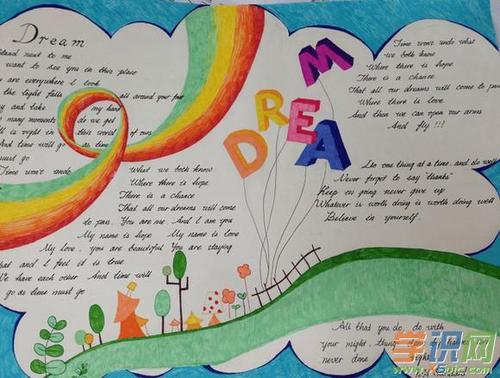 Dream
stand next to me
want to see you in this place
are everywhere I look
the light falls all around your feet
and take my hand
many moments do we get
is right in this world of ours
And time will go as time
must go
Time won't undo
What we both know
Where there is hope
There is a chance
That all our dreams will come
to pass. You are me And I am you
My name is hope My name is love
My love, you are beautiful You are staying
that and I feel it is true
We have each other And time will
go as time must go
DREAM
Time won't undo what
we both know
Where there is hope
There is a chance
That all our dreams will come to pass
Where there is love
And then we can open our arms
And fly !!!
Do one thing at a time, and do well.
Never forget to say "thanks"
Keep on going never give up
Whatever is worth doing is worth doing well
Believe in yourself.
All that you do, do with
your might, things done by halves are
never done right.
学识网